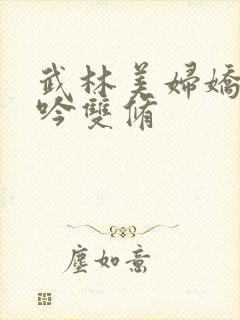 武林美婦嬌
吟雙脩
塵如意